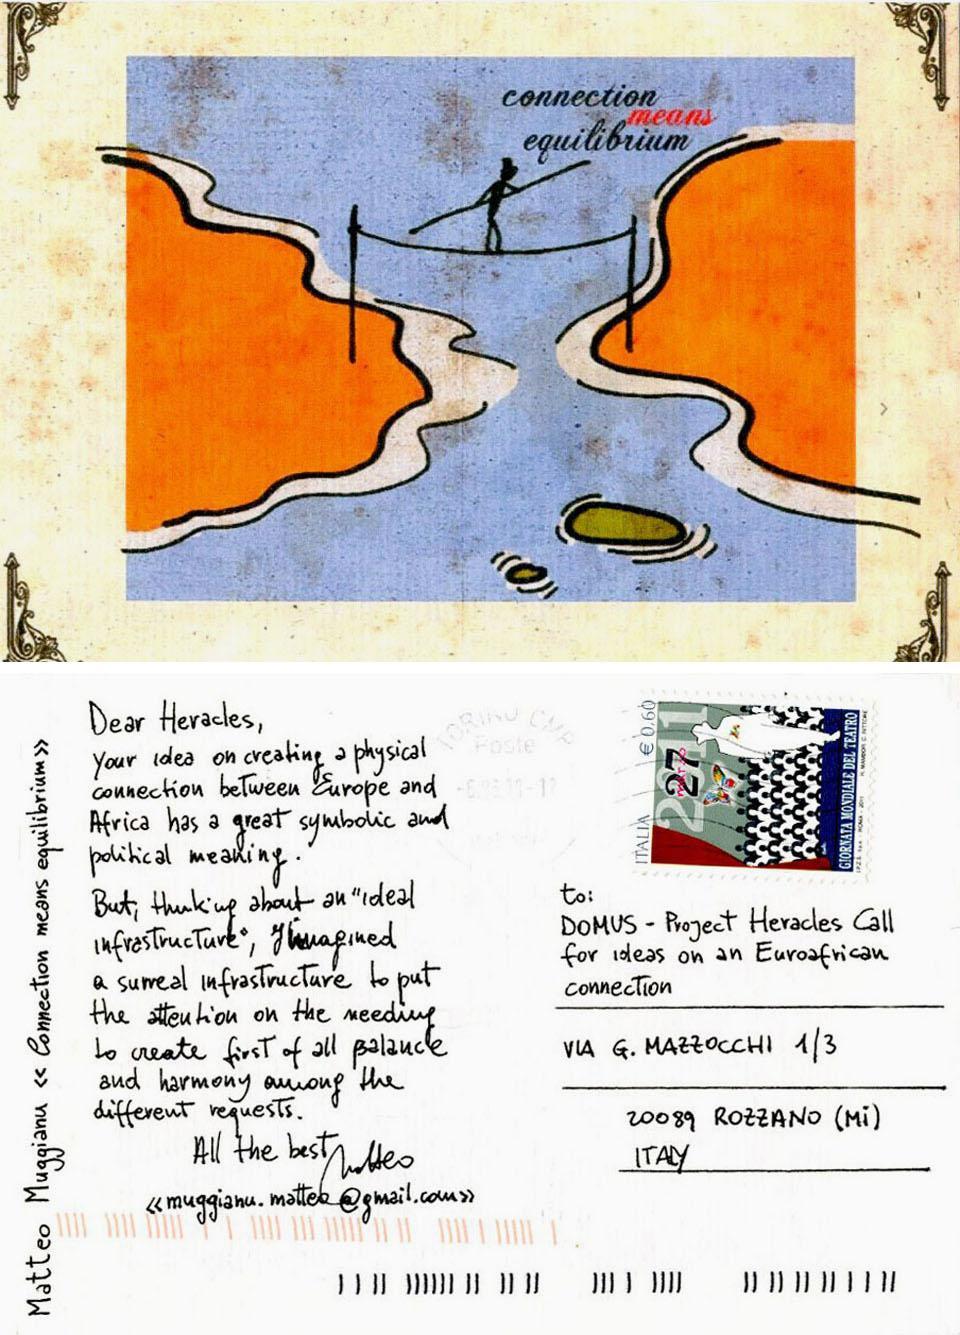 connection
means
equilibrium
Dear Heracles,
Your idea on creating a physical
connection between Europe and
Africa has a great symbolic and
political meaning.
But, thinking about an "ideal
infrastructure", I immagined
a surreal infrastructure to put
the attention on the needing
to create first of all balance
and harmony among the
different requests.
All the best
Matteo
«muggianu.matteo@gmail.com»
Matteo Muggianu « Connection means equilibrium»
TORINO CMP
Poste
ITALIA € 0,60
2011
27
marzo
GIORNATA MONDIALE DEL TEATRO
I.P.Z.S. S.p.A. - ROMA - 2011
to:
DOMUS - Project Heracles Call
for ideas on an Euroafrican
connection
VIA G. MAZZOCCHI 1/3
20089 ROZZANO (Mi)
ITALY